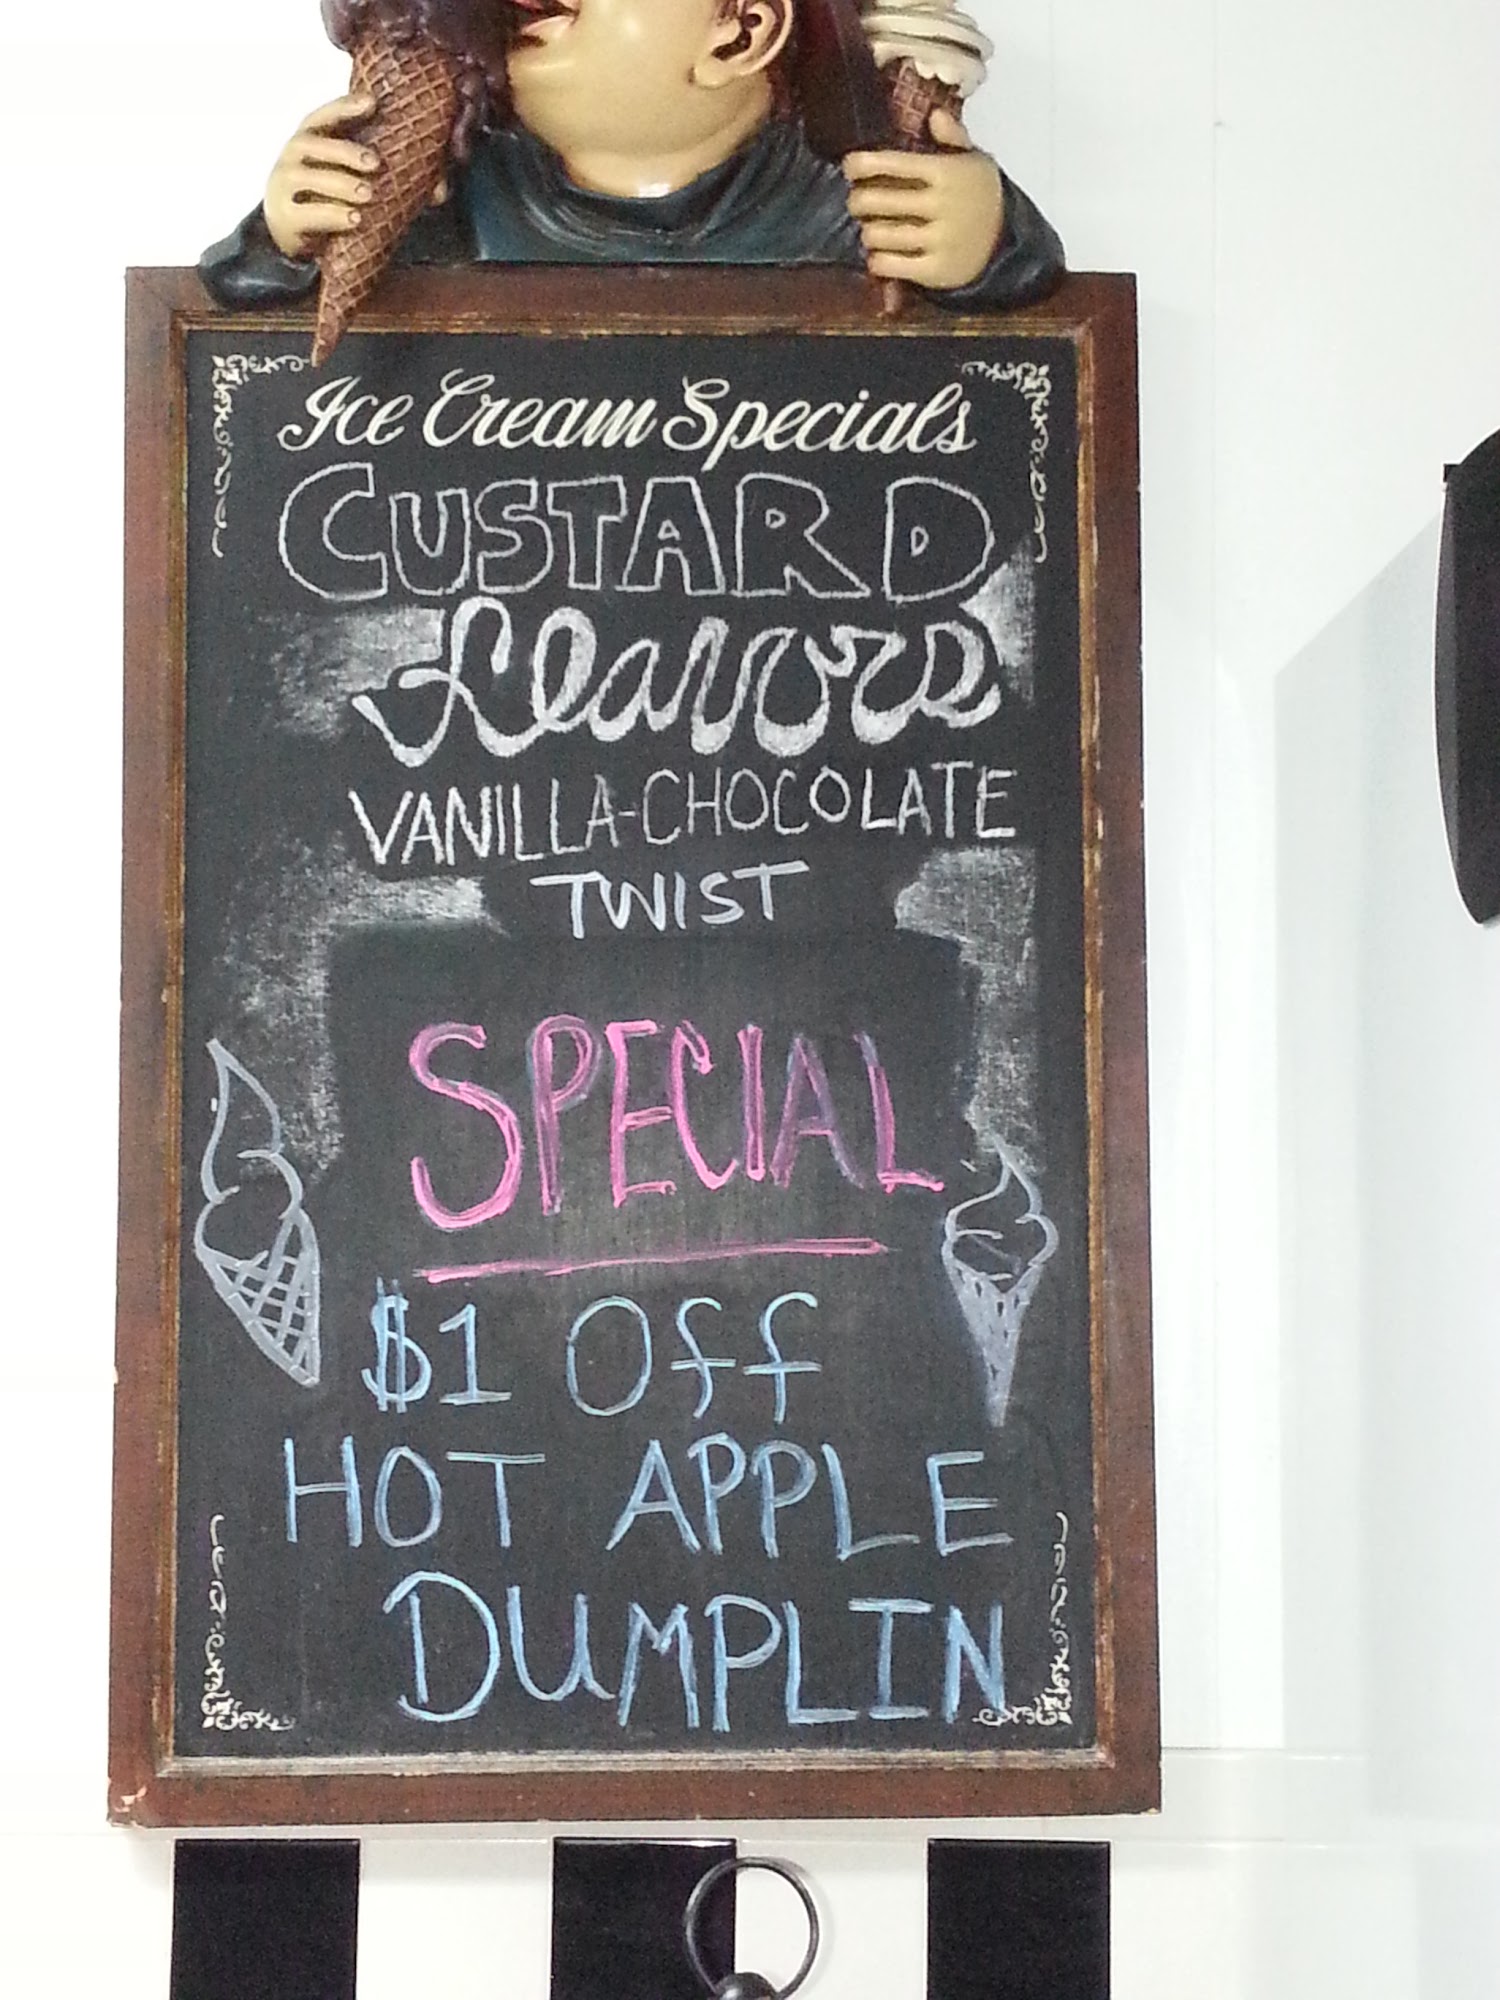 Ice Cream Specials
CUSTARD
flavors
VANILLA-CHOCOLATE
TWIST
SPECIAL
$1 Off
HOT APPLE
DUMPLIN